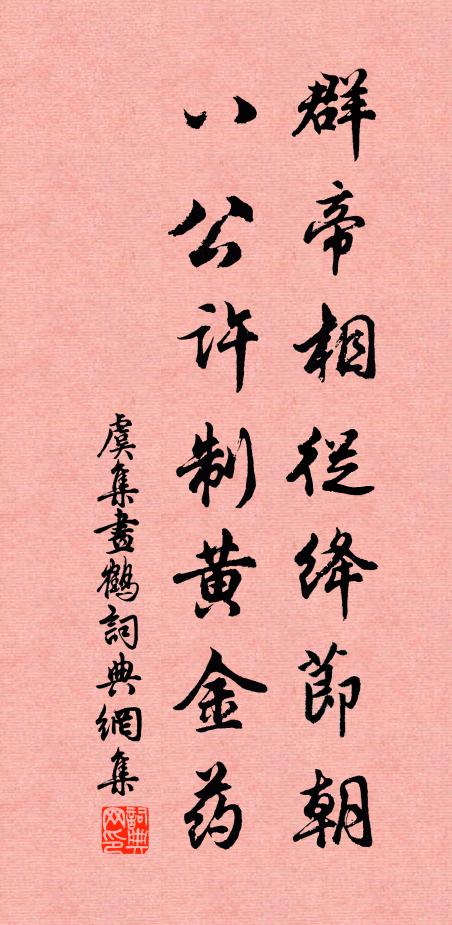 群帝相從絳節朝
八公許制黄金药
虞集畫鶴詞典網集
詞典網印